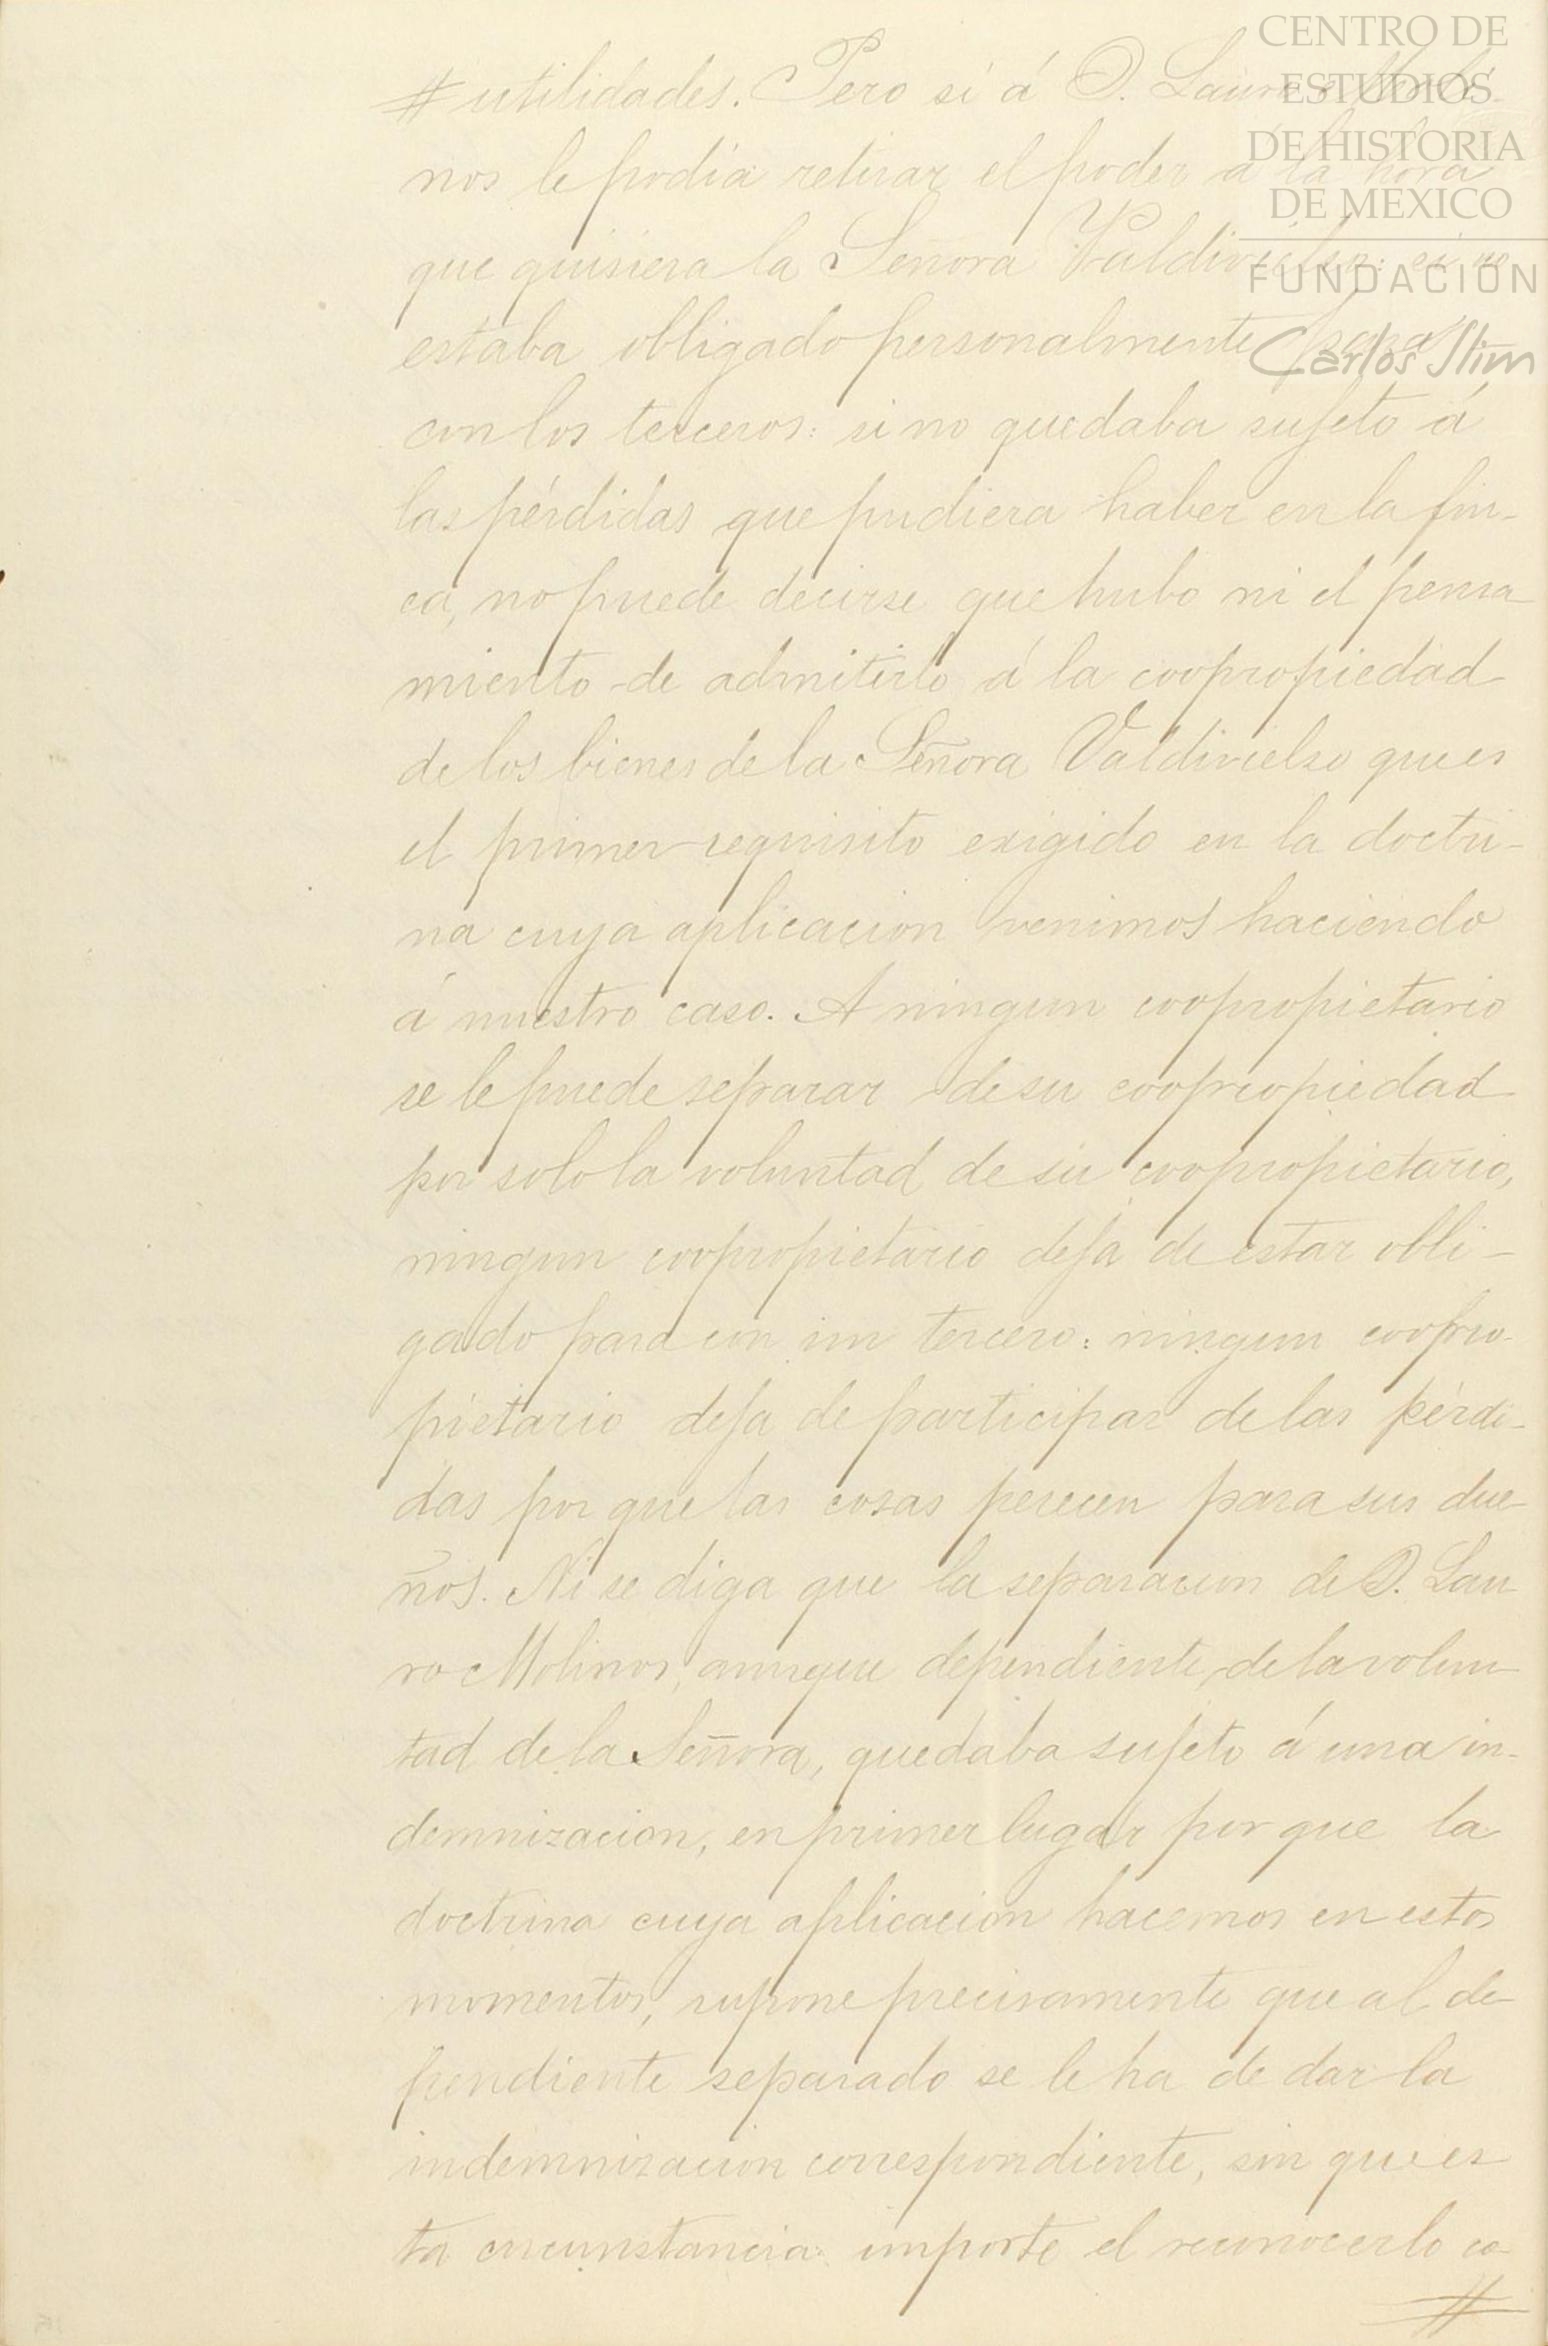 CENTRO DE
ESTUDIOS
DE HISTORIA
DE MEXICO
FUNDACIÓN
Carlos Slim
# utilidades. Pero si á D. Lauro Moli-
nos le podia retirar el poder á la hora
que quisiera la Señora Valdivielso: si no
estaba obligado personalmente para
con los terceros: si no quedaba sujeto á
las pérdidas que pudiera haber en la fin-
ca, no puede decirse que hubo ni el pensa
miento de admitirlo á la coopropiedad
de los bienes de la Señora Valdivielso que es
el primer requisito exigido en la doctri-
na cuya aplicacion venimos haciendo
á nuestro caso. A ningun coopropietario
se le puede separar de su coopropiedad
por solo la voluntad de su coopropietario,
ningun coopropietario deja de estar obli-
gado para con un tercero: ningun coopro-
pietario deja de participar de las pérdi-
das por que las cosas perecen para sus due-
ños. Ni se diga que la separacion de D. Lau
ro Molinos, aunque dependiente de la volun-
tad de la Señora, quedaba sujeto á una in-
demnizacion, en primer lugar por que la
doctrina cuya aplicacion hacemos en estos
momentos, supone precisamente que al de-
pendiente separado se le ha de dar la
indemnizacion correspondiente, sin que es
ta circunstancia importe el reconocerlo co-
#